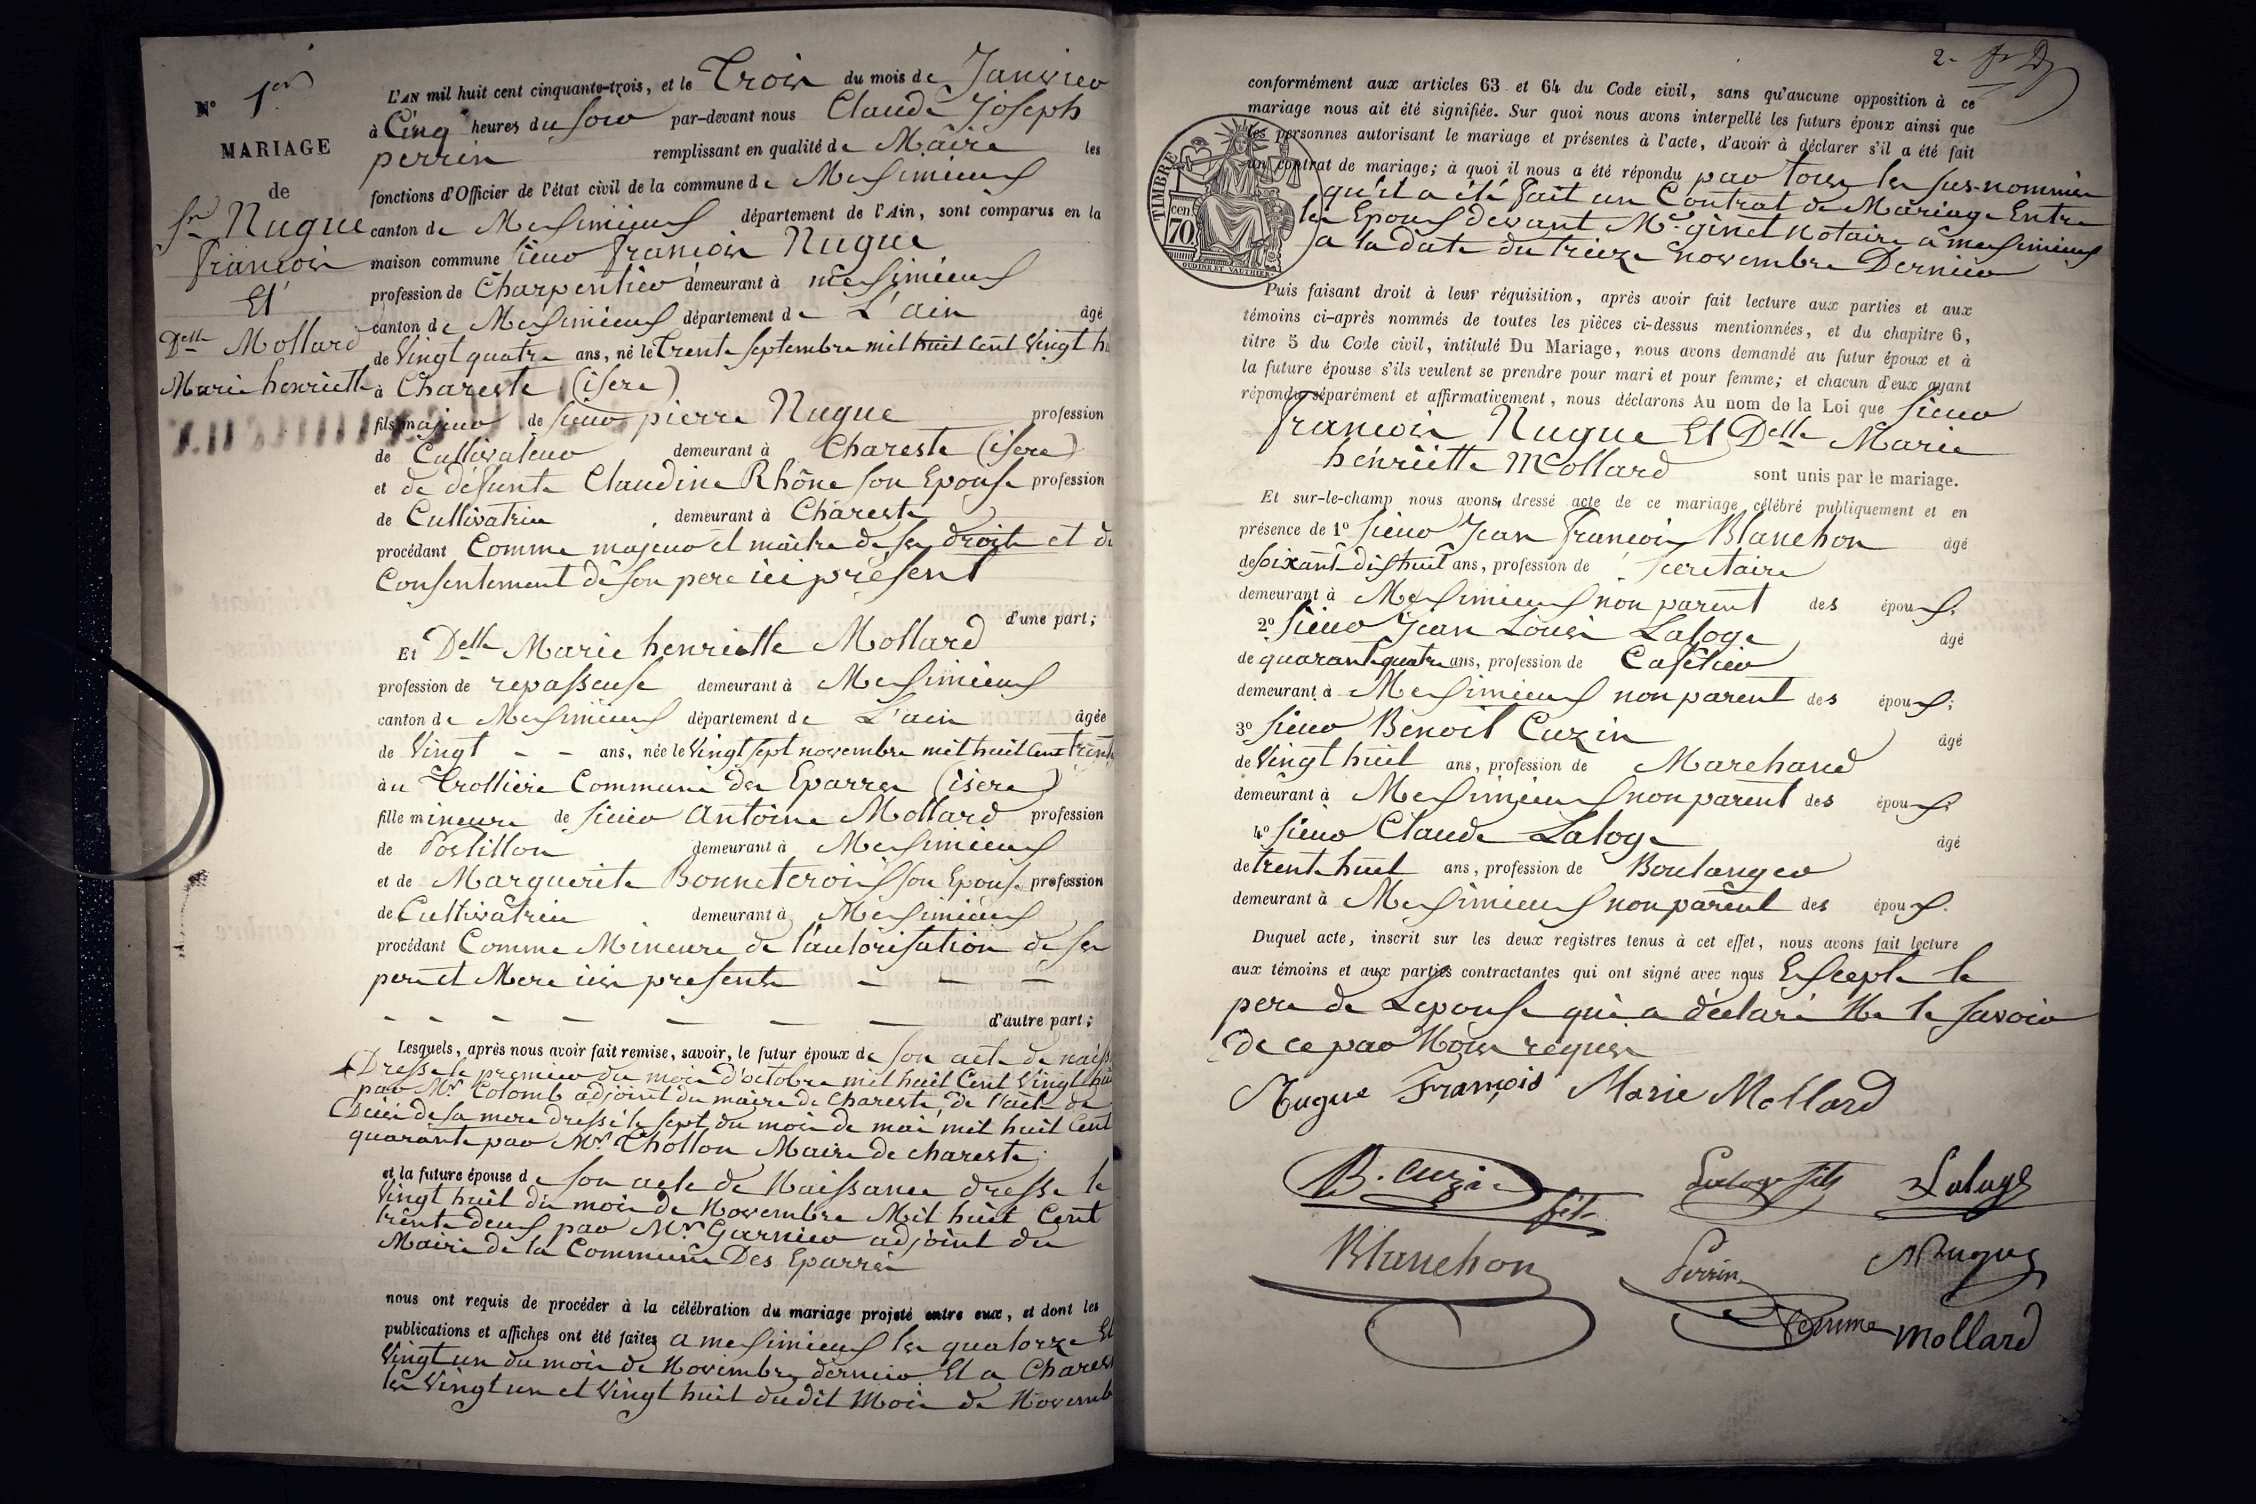 N° 1er
MARIAGE
de
Sr Nugue
François
Et
Delle Mollard
Marie henriette
L'AN mil huit cent cinquante-trois, et le Trois du mois de Janvier
à Cinq heures du soir par-devant nous Claude Joseph
perrin remplissant en qualité de Maire les
fonctions d'Officier de l'état civil de la commune de Meximieux
canton de Meximieux département de l'Ain, sont comparus en la
maison commune sieur françois Nugue
profession de Charpentier demeurant à meximieux
canton de Meximieux département de L'ain âgé
de Vingt quatre ans, né le trente septembre mil huit cent Vingt hu
à Chareste (isere)
fils majeur de sieur pierre Nugue profession
de Cultivateur demeurant à Chareste (isere)
et de défunte Claudine Rhône son Epouse profession
de Cultivatrice demeurant à Chareste
procédant Comme majeur et maitre de ses droits et du
Consentement de son pere ici présent
d'une part;
Et Delle Marie henriette Mollard
profession de repasseuse demeurant à Meximieux
canton de Meximieux département de L'ain âgée
de Vingt - - ans, née le Vingt sept novembre mil huit cent trente
au Trollière Commune des Eparres (isere)
fille mineure de sieur Antoine Mollard profession
de Postillon demeurant à Meximieux
et de Marguerite Bonneterois son Epouse profession
de Cultivatrice demeurant à Meximieux
procédant Comme Mineure de l'autorisation de ses
pere et Mere ici presents - - -
- - - - - - - d'autre part;
Lesquels, après nous avoir fait remise, savoir, le futur époux de son acte de naiss
Dressé le premier du mois d'octobre mil huit Cent Vingt hui
par Mr Colomb adjoint du maire de Chareste, de l'acte de
Décès de sa mere dressé le sept du mois de mai mil huit Cent
quarante par Mr Thollon Maire de chareste;
et la future épouse de son acte de Naissance dressé le
Vingt huit du mois de Novembre Mil huit Cent
trente deux par Mr Garnier adjoint du
Maire de la Commune Des Eparres
nous ont requis de procéder à la célébration du mariage projeté entre eux, et dont les
publications et affiches ont été faites a meximieux les quatorze Et
Vingt un du mois de Novembre dernier Et a Charest
les Vingt un et Vingt huit dudit Mois de Novemb
2.
conformément aux articles 63 et 64 du Code civil, sans qu'aucune opposition à ce
mariage nous ait été signifiée. Sur quoi nous avons interpellé les futurs époux ainsi que
les personnes autorisant le mariage et présentes à l'acte, d'avoir à déclarer s'il a été fait
un contrat de mariage; à quoi il nous a été répondu par tous les sus-nommés
qu'il a été fait un Contrat de Mariage Entre
les Epoux devant Me ginet Notaire a meximieux
a la date du treize novembre Dernier
TIMBRE
cen.
70
OUDINÉ ET VAUTHIER
Puis faisant droit à leur réquisition, après avoir fait lecture aux parties et aux
témoins ci-après nommés de toutes les pièces ci-dessus mentionnées, et du chapitre 6,
titre 5 du Code civil, intitulé Du Mariage, nous avons demandé au futur époux et à
la future épouse s'ils veulent se prendre pour mari et pour femme; et chacun d'eux ayant
répondu séparément et affirmativement, nous déclarons Au nom de la Loi que sieur
françois Nugue Et Delle Marie
henriette Mollard sont unis par le mariage.
Et sur-le-champ nous avons dressé acte de ce mariage célébré publiquement et en
présence de 1° sieur Jean françois Blanchon âgé
de soixante dishuit ans, profession de Secretaire
demeurant à Meximieux non parent des époux;
2° sieur Jean Louis Laloge âgé
de quarante quatre ans, profession de Cafetier
demeurant à Meximieux non parent des époux;
3° sieur Benoit Cuzin âgé
de Vingt huit ans, profession de Marchand
demeurant à Meximieux non parent des époux;
4° sieur Claude Laloge âgé
de trente huit ans, profession de Boulanger
demeurant à Meximieux non parent des époux.
Duquel acte, inscrit sur les deux registres tenus à cet effet, nous avons fait lecture
aux témoins et aux parties contractantes qui ont signé avec nous Excepté le
pere de Lepouse qui a déclaré Ne le savoir
de ce par Nous requis
Nugue François Marie Mollard
B. Cuzin fils Laloge fils Laloge
Blanchon Perrin Nugue
femme Mollard